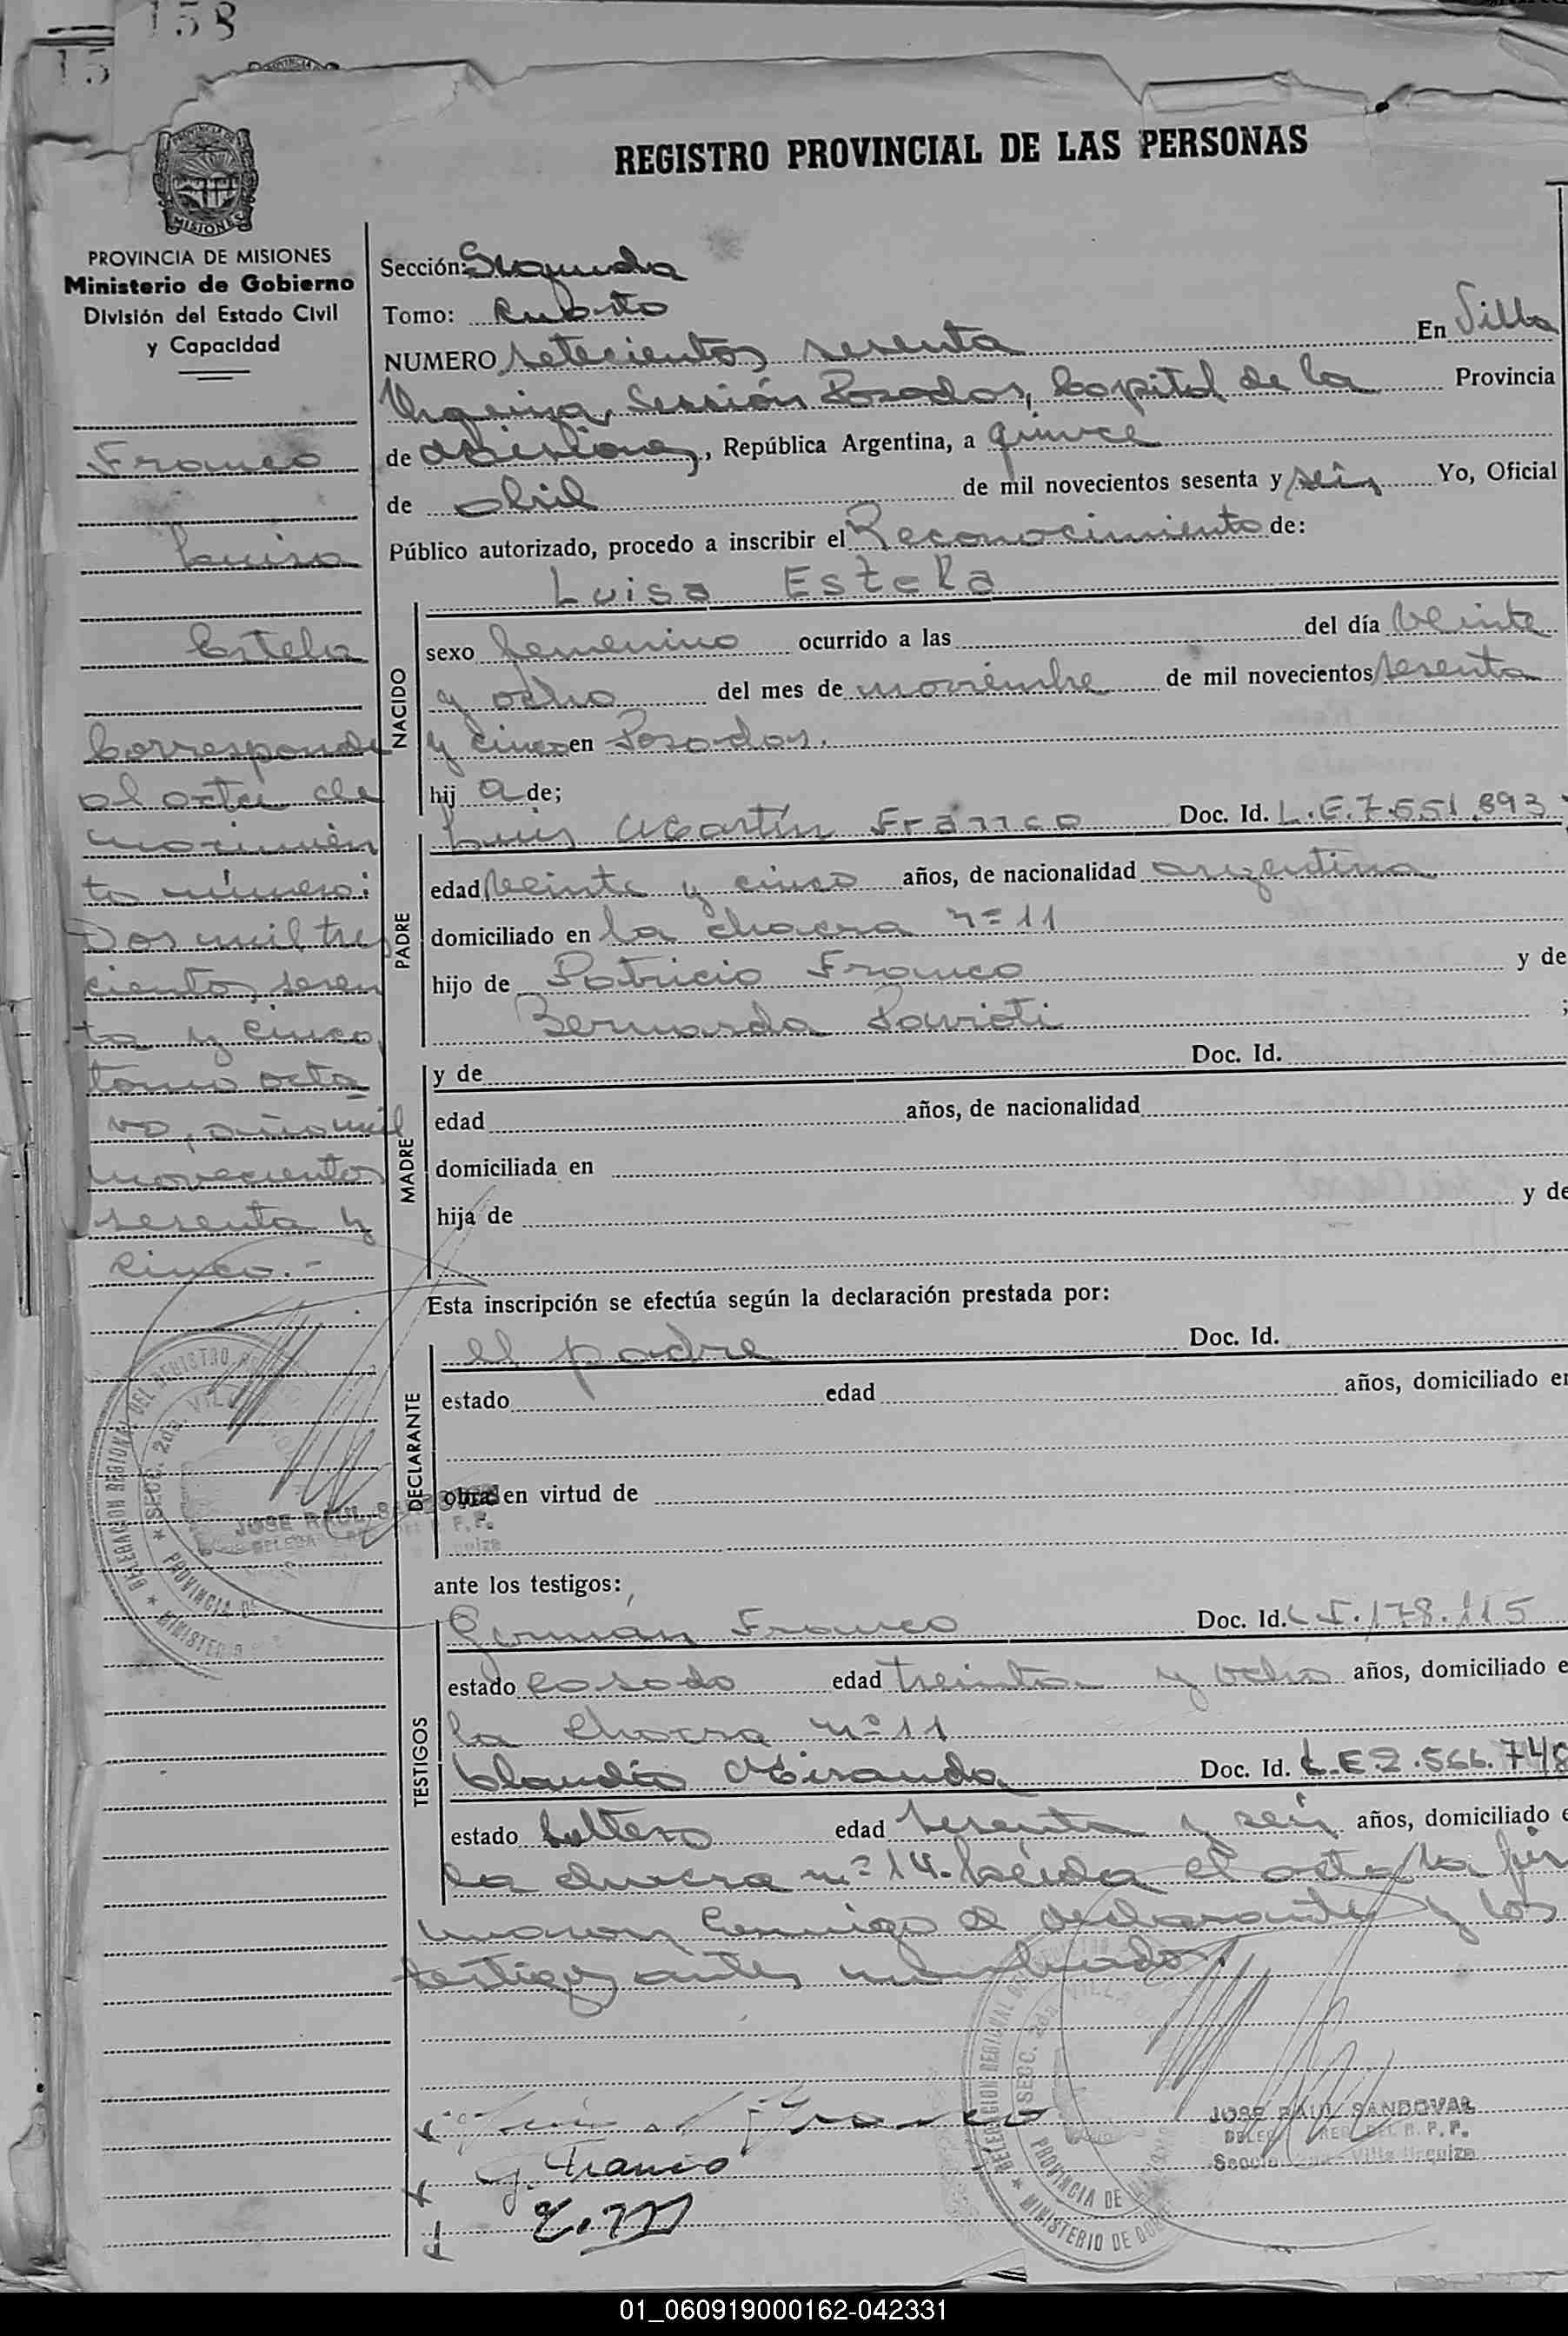 158
15
REGISTRO PROVINCIAL DE LAS PERSONAS
MISIONES
PROVINCIA DE MISIONES
Ministerio de Gobierno
División del Estado Civil
y Capacidad
Franco
Luisa
Estela
Corresponde
al acta de
nacimien
to número:
Dos mil tres
cientos sesen
ta y cinco
tomo octa
vo, año mil
novecientos
sesenta y
cinco.-
Sección: Segunda
Tomo: Cuarto
NUMERO setecientos sesenta En Villa
Urquiza, Sección Posadas, Capital de la Provincia
de Misiones, República Argentina, a quince
de abril de mil novecientos sesenta y seis Yo, Oficial
Público autorizado, procedo a inscribir el Reconocimiento de:
NACIDO
Luisa Estela
sexo femenino ocurrido a las del día veinte
y ocho del mes de noviembre de mil novecientos sesenta
y cinco en Posadas.
hij a de;
PADRE
Luis Martín Franco Doc. Id. L.E.7.551.893
edad veinte y cinco años, de nacionalidad argentina
domiciliado en la chacra nº 11
hijo de Patricio Franco y de
Bernarda ;
MADRE
y de Doc. Id.
edad años, de nacionalidad
domiciliada en
hija de y de
Esta inscripción se efectúa según la declaración prestada por:
DECLARANTE
el padre Doc. Id.
estado edad años, domiciliado en
obra en virtud de
JOSE RAUL SANDOVAL
ante los testigos:
TESTIGOS
German Franco Doc. Id. 178.115
estado casado edad treinta y ocho años, domiciliado e
la chacra nº 11
Claudio Miranda Doc. Id. L.E 2.566.748
estado soltero edad sesenta y seis años, domiciliado e
la chacra nº 14. Leída el acta la fir
maron conmigo el declarante y los
testigos antes nombrados.
DELEGACION REGIONAL DEL REGISTRO
SECC. 2da. VILLA
PROVINCIA DE
MINISTERIO DE
Franco
G. Franco
JOSE RAUL SANDOVAL
Villa Urquiza
01_060919000162-042331